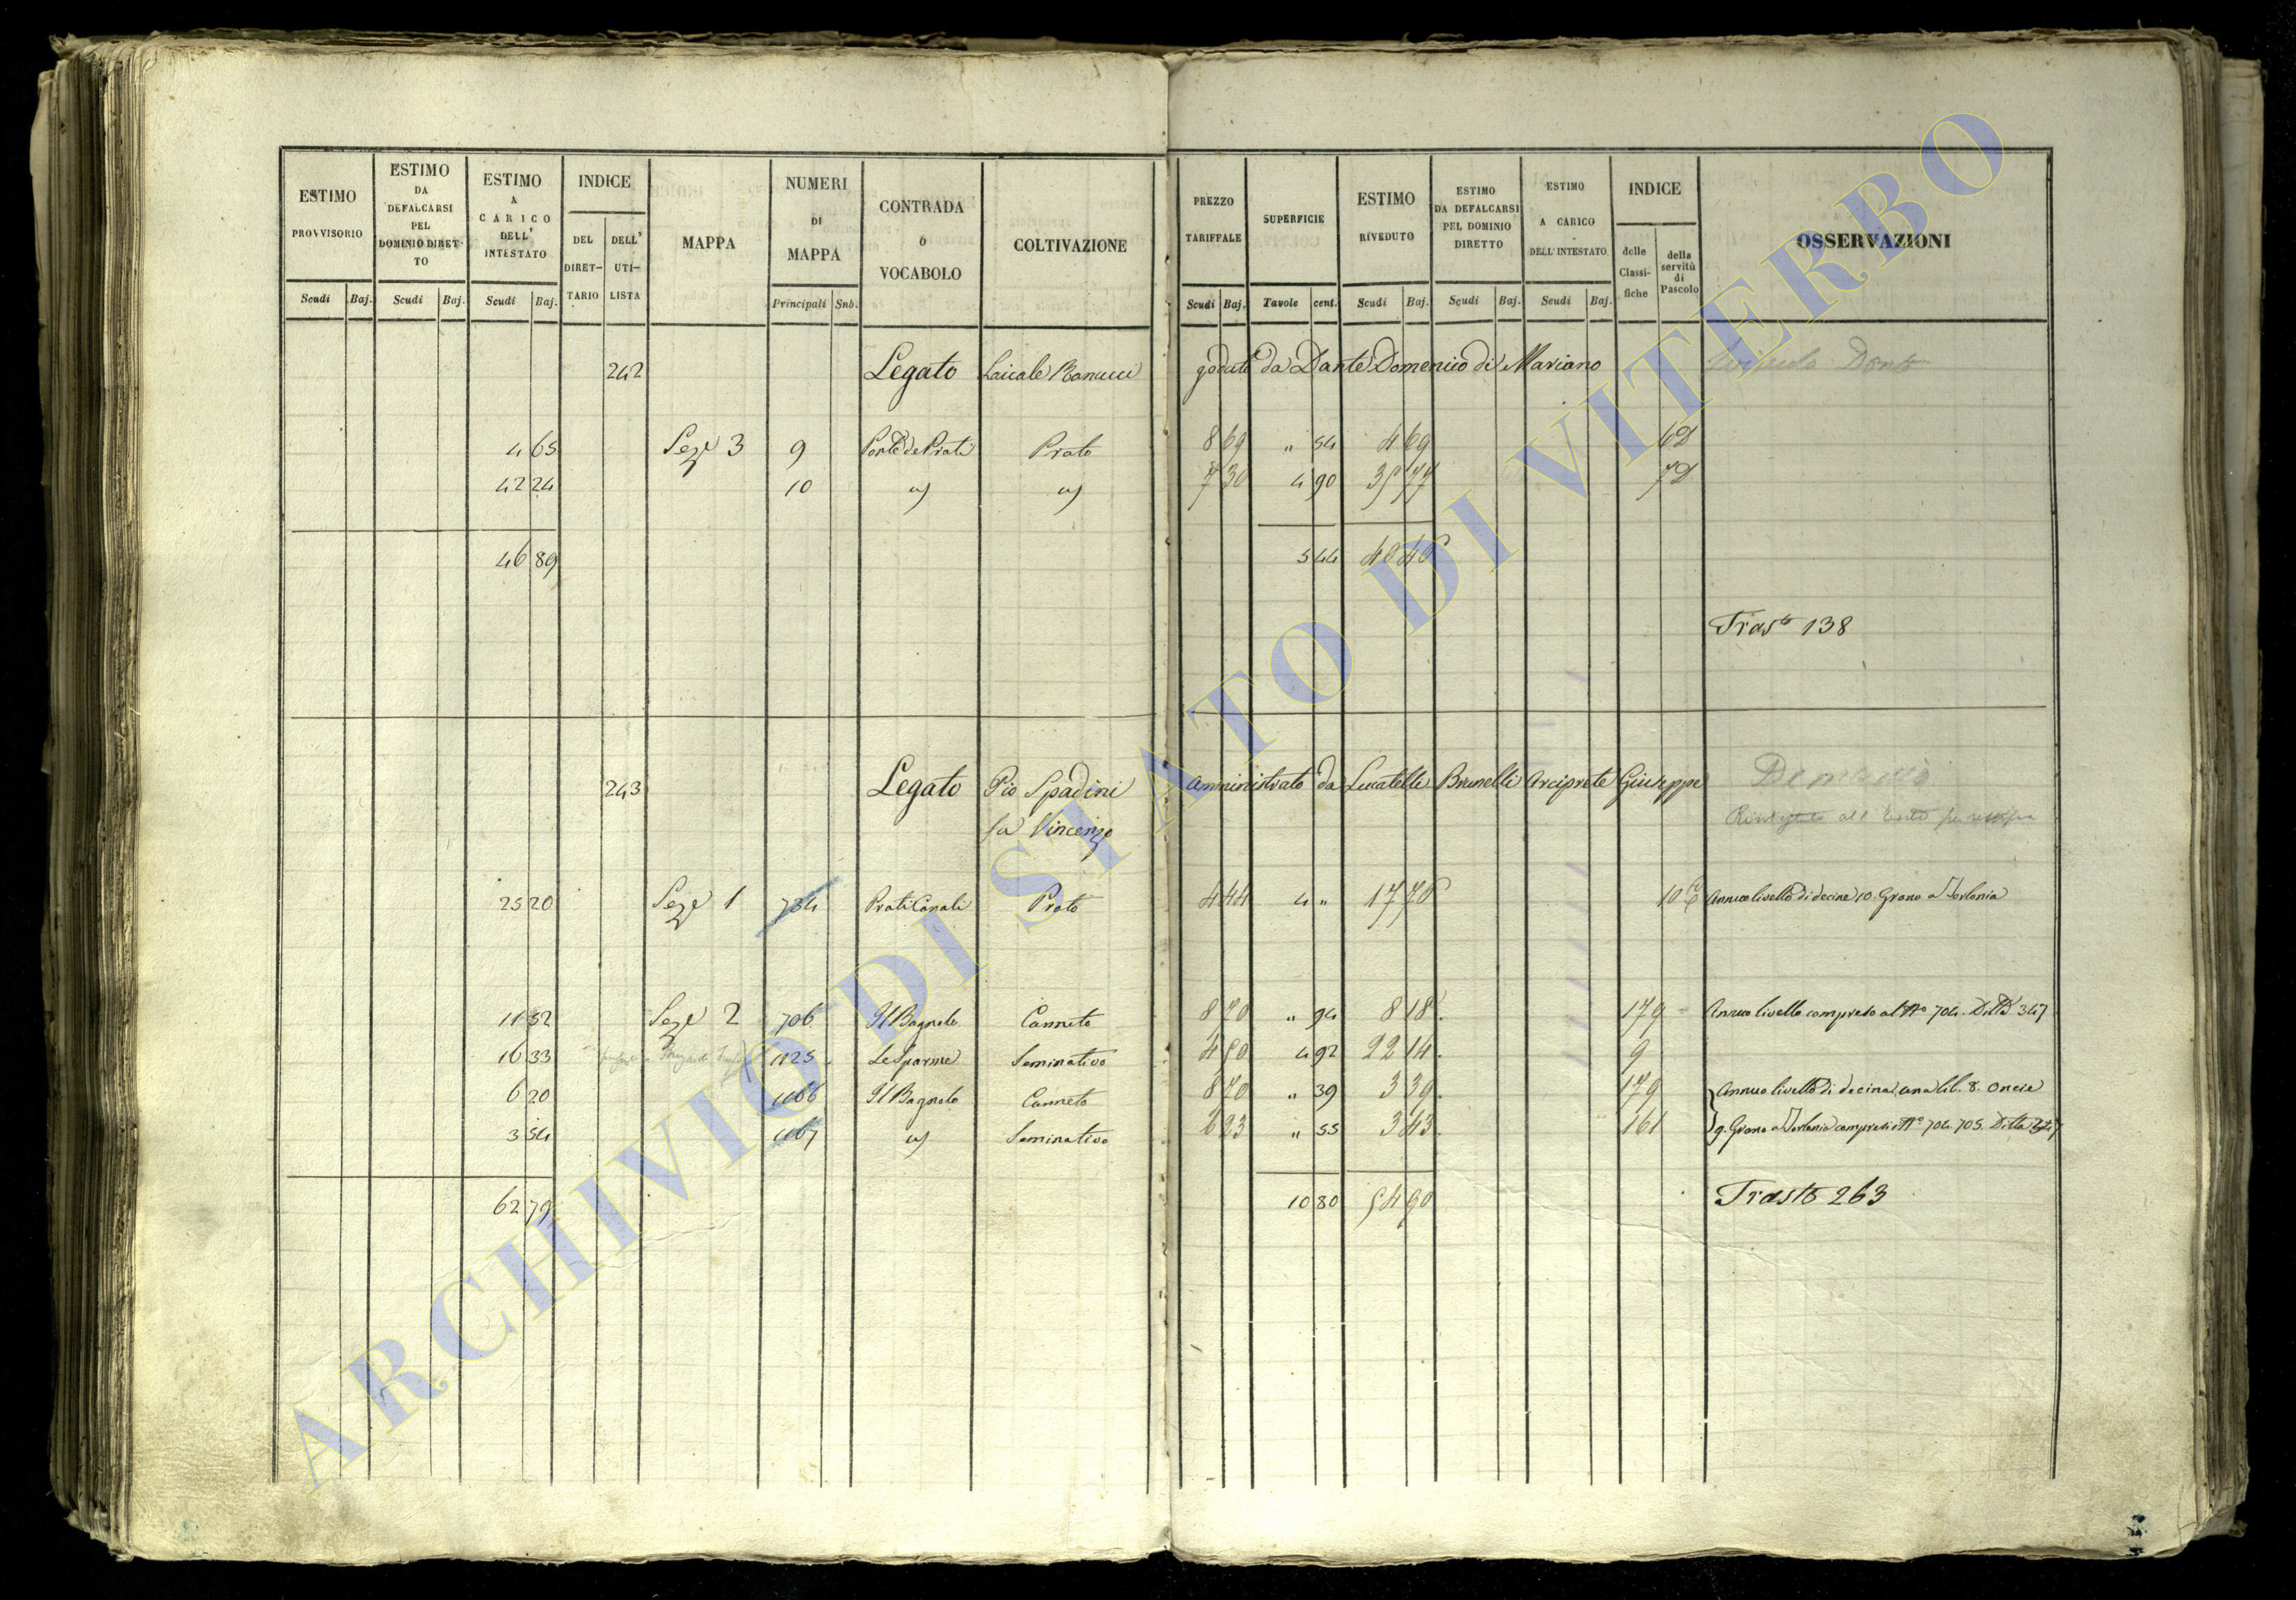 ESTIMO PROVVISORIO
ESTIMO DA DEFALCARSI PEL DOMINIO DIRET- TO
ESTIMO A CARICO DELL' INTESTATO
INDICE
DEL DIRET- TARIO
DELL' UTI- LISTA
MAPPA
NUMERI DI MAPPA
CONTRADA ò VOCABOLO
COLTIVAZIONE
PREZZO TARIFFALE
SUPERFICIE
ESTIMO RIVEDUTO
ESTIMO DA DEFALCARSI PEL DOMINIO DIRETTO
ESTIMO A CARICO DELL' INTESTATO
INDICE
delle Classi- fiche
della servitù di Pascolo
OSSERVAZIONI
Scudi Baj. Scudi Baj. Scudi Baj. Principali Snb. Scudi Baj. Tavole cent. Scudi Baj. Scudi Baj. Scudi Baj.
242 Legato Laicale Ranucci goduto da Dante Domenico di Mariano
4 65 Seze 3 9 Ponte de Prati Prato 8 69 " 54 4 69
42 24 10 7 30 4 90 35 77
46 89 5 44 40 46
Trasto 138
243 Legato Pio Spadini Amministrato da Lucatelli Brunelli Arciprete Giuseppe
fu Vincenzo
25 20 Seze 1 734 Prati Canali Prato 4 44 4 " 17 76 Annuo livello di decine 10. Grano a Torlonia
11 52 Seze 2 706 Il Bagnolo Canneto 8 70 " 94 8 18 179 Annuo livello compreso al No 704. Ditta 347
16 33 1125 Le Sparme Seminativo 4 50 4 92 22 14 9
6 20 1166 Il Bagnolo Canneto 8 70 " 39 3 39 179 Annuo livello di decina una lib. 8. oncie
3 54 1167 Seminativo 6 23 " 55 3 43 161 9. Grano a Torlonia compresi i No 704. 705. Ditta 347
62 79 10 80 54 90 Trasto 263
ARCHIVIO DI STATO DI VITERBO